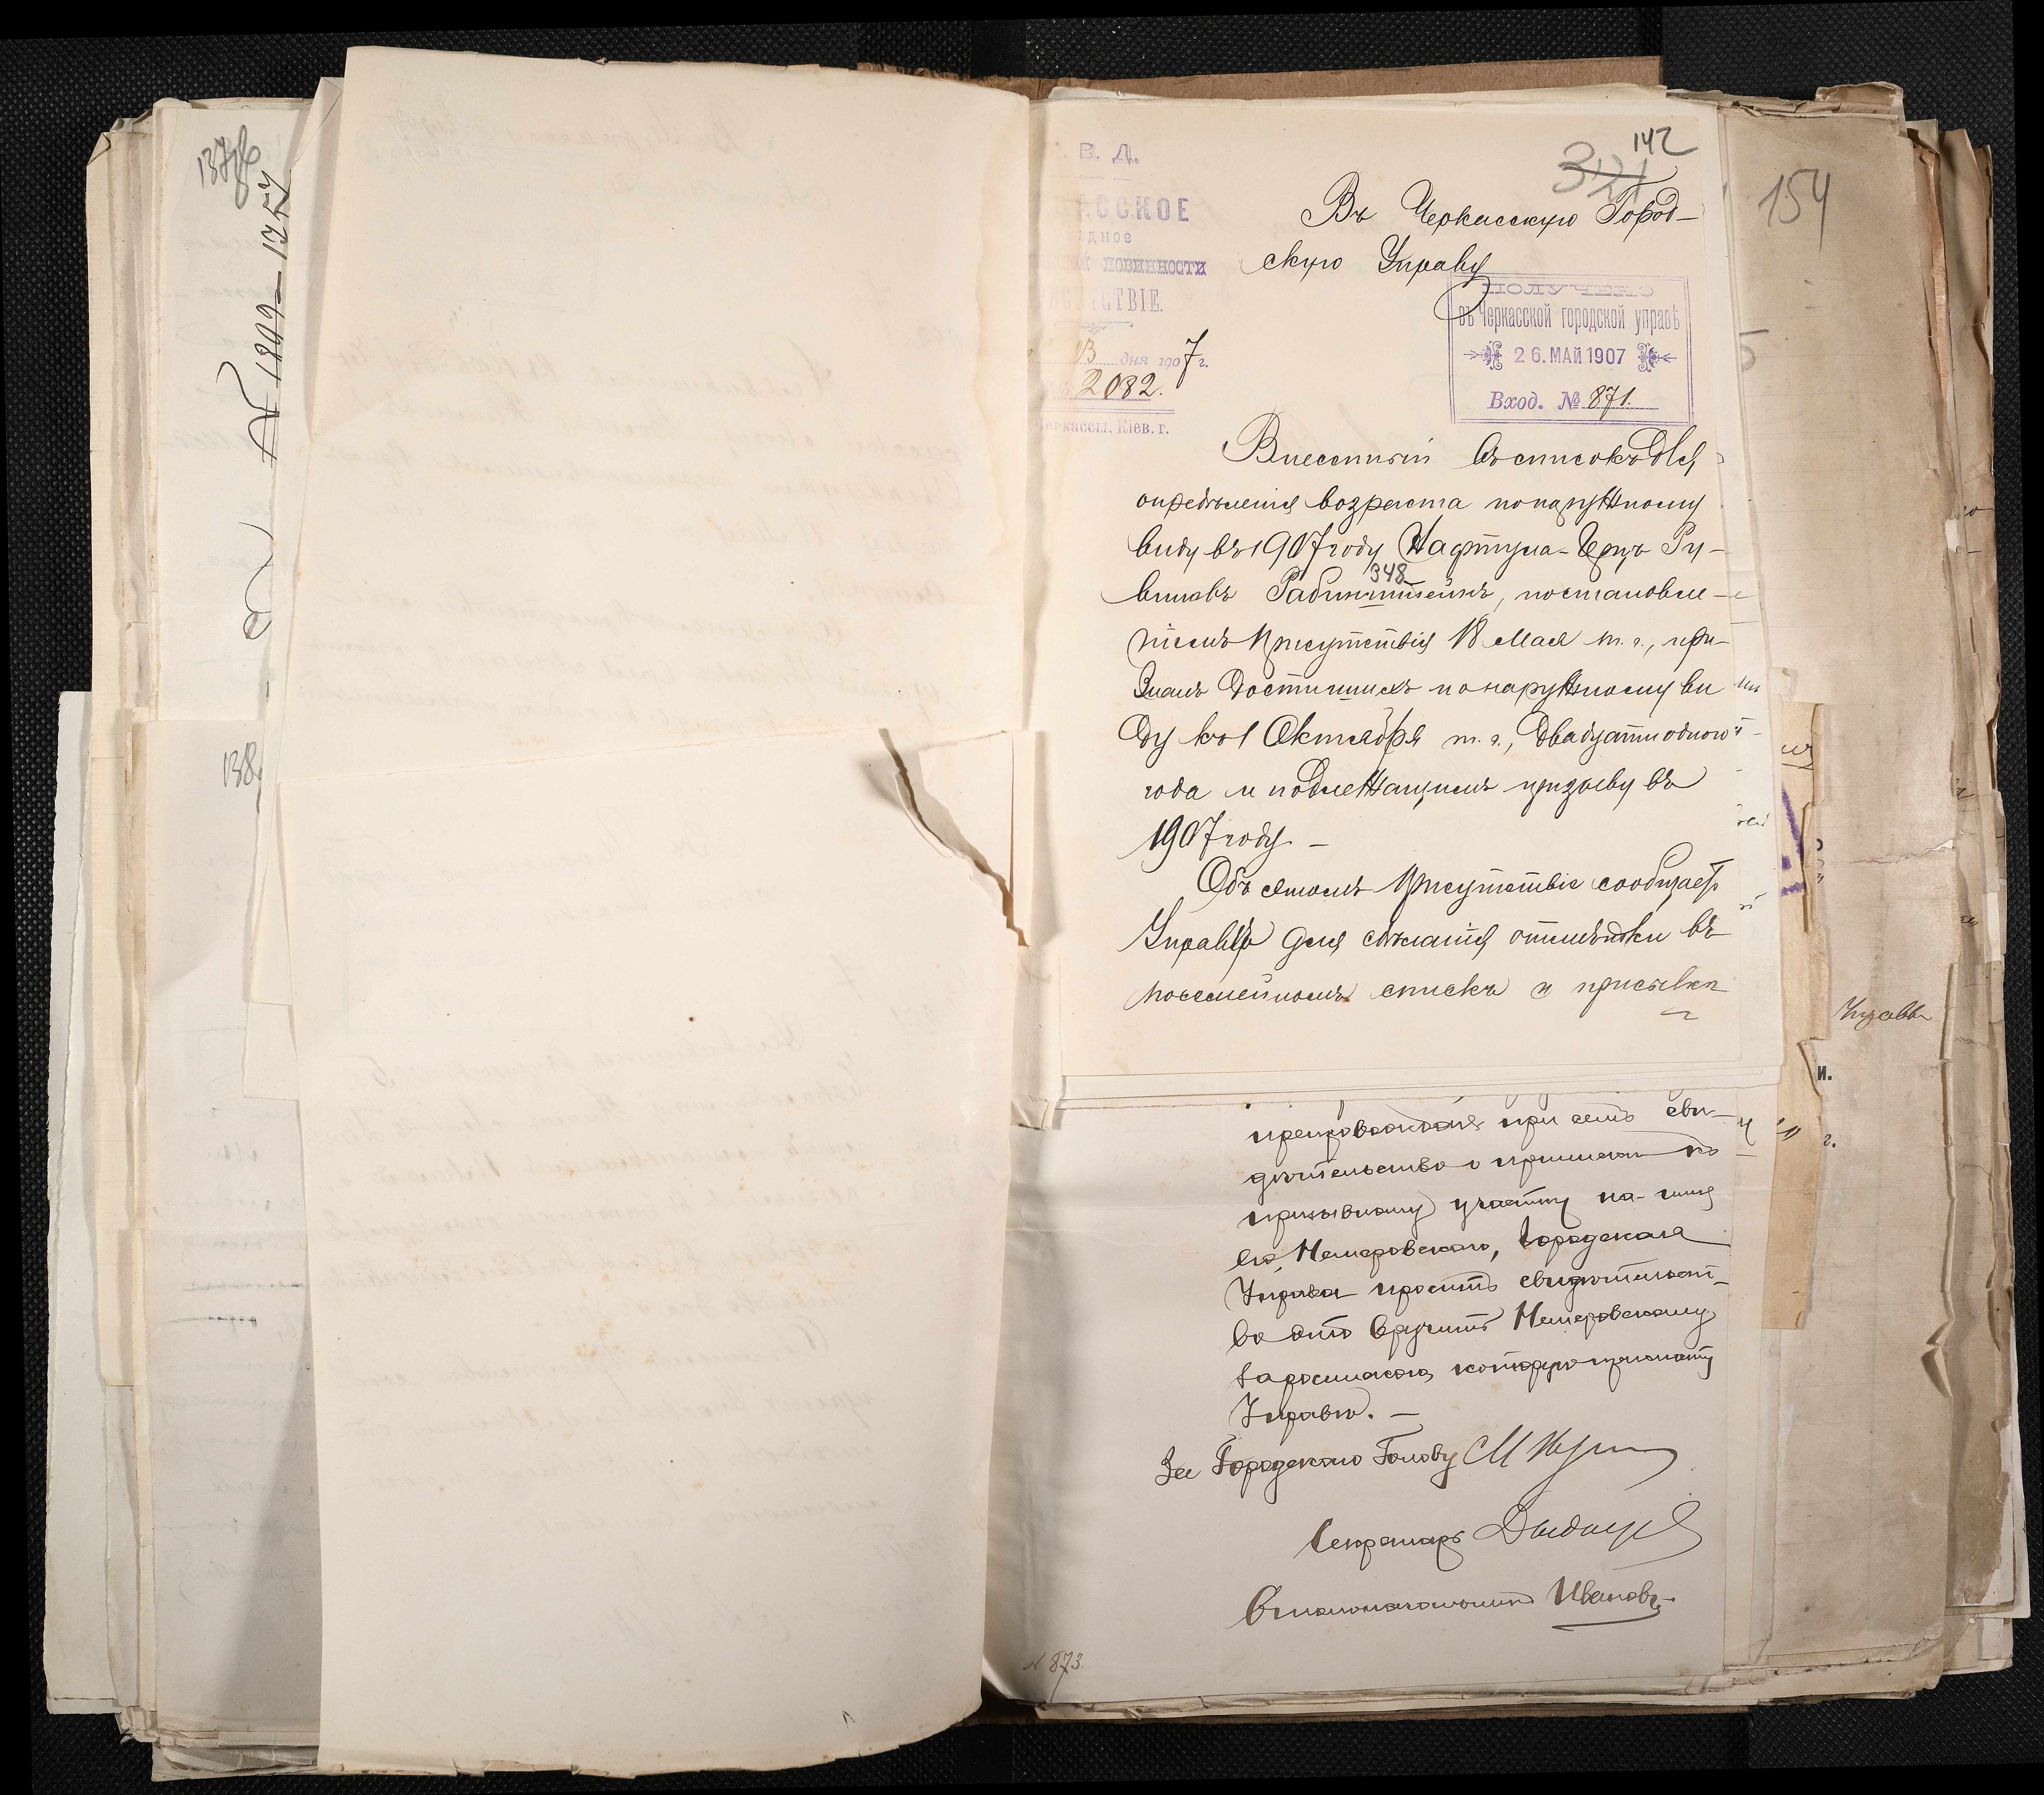 137
138
№ 1899 — 1757
142
321
154
В. Д.
АССКОЕ
дное
повинности
СТВІЕ.
дня 1907 г.
2082.
Черкассы, Кіев. г.
Въ Черкасскую Город-
скую Управу
ПОЛУЧЕНО
въ Черкасской городской управѣ
26. МАЙ 1907
Вход. № 871.
Внесенный въ списокъ для
опредѣленія возраста по наружному
виду въ 1907 году Нафтула-Герцъ Ру-
виновъ Рабинштейнъ, постановле-
348
ніемъ Присутствія 18 Мая т. г., при-
знанъ достигшимъ по наружному ви
ду къ 1 Октября т. г., двадцатиодного
года и подлежащимъ призыву въ
1907 году. —
Объ этомъ Присутствіе сообщаетъ
Управѣ для сдѣланія отмѣтки въ
посемейномъ спискѣ и присылки
препровождая при семъ сви-
дѣтельство о припискѣ къ
призывному участку на имя
его, Немеровскаго, Городская
Управа проситъ свидѣтельст-
во это вручить Немеровскому
которую прислать
Управѣ. —
За Городского Голову
Секретарь
Столоначальникъ Ивановъ
N 873.
Управѣ
и.
г.